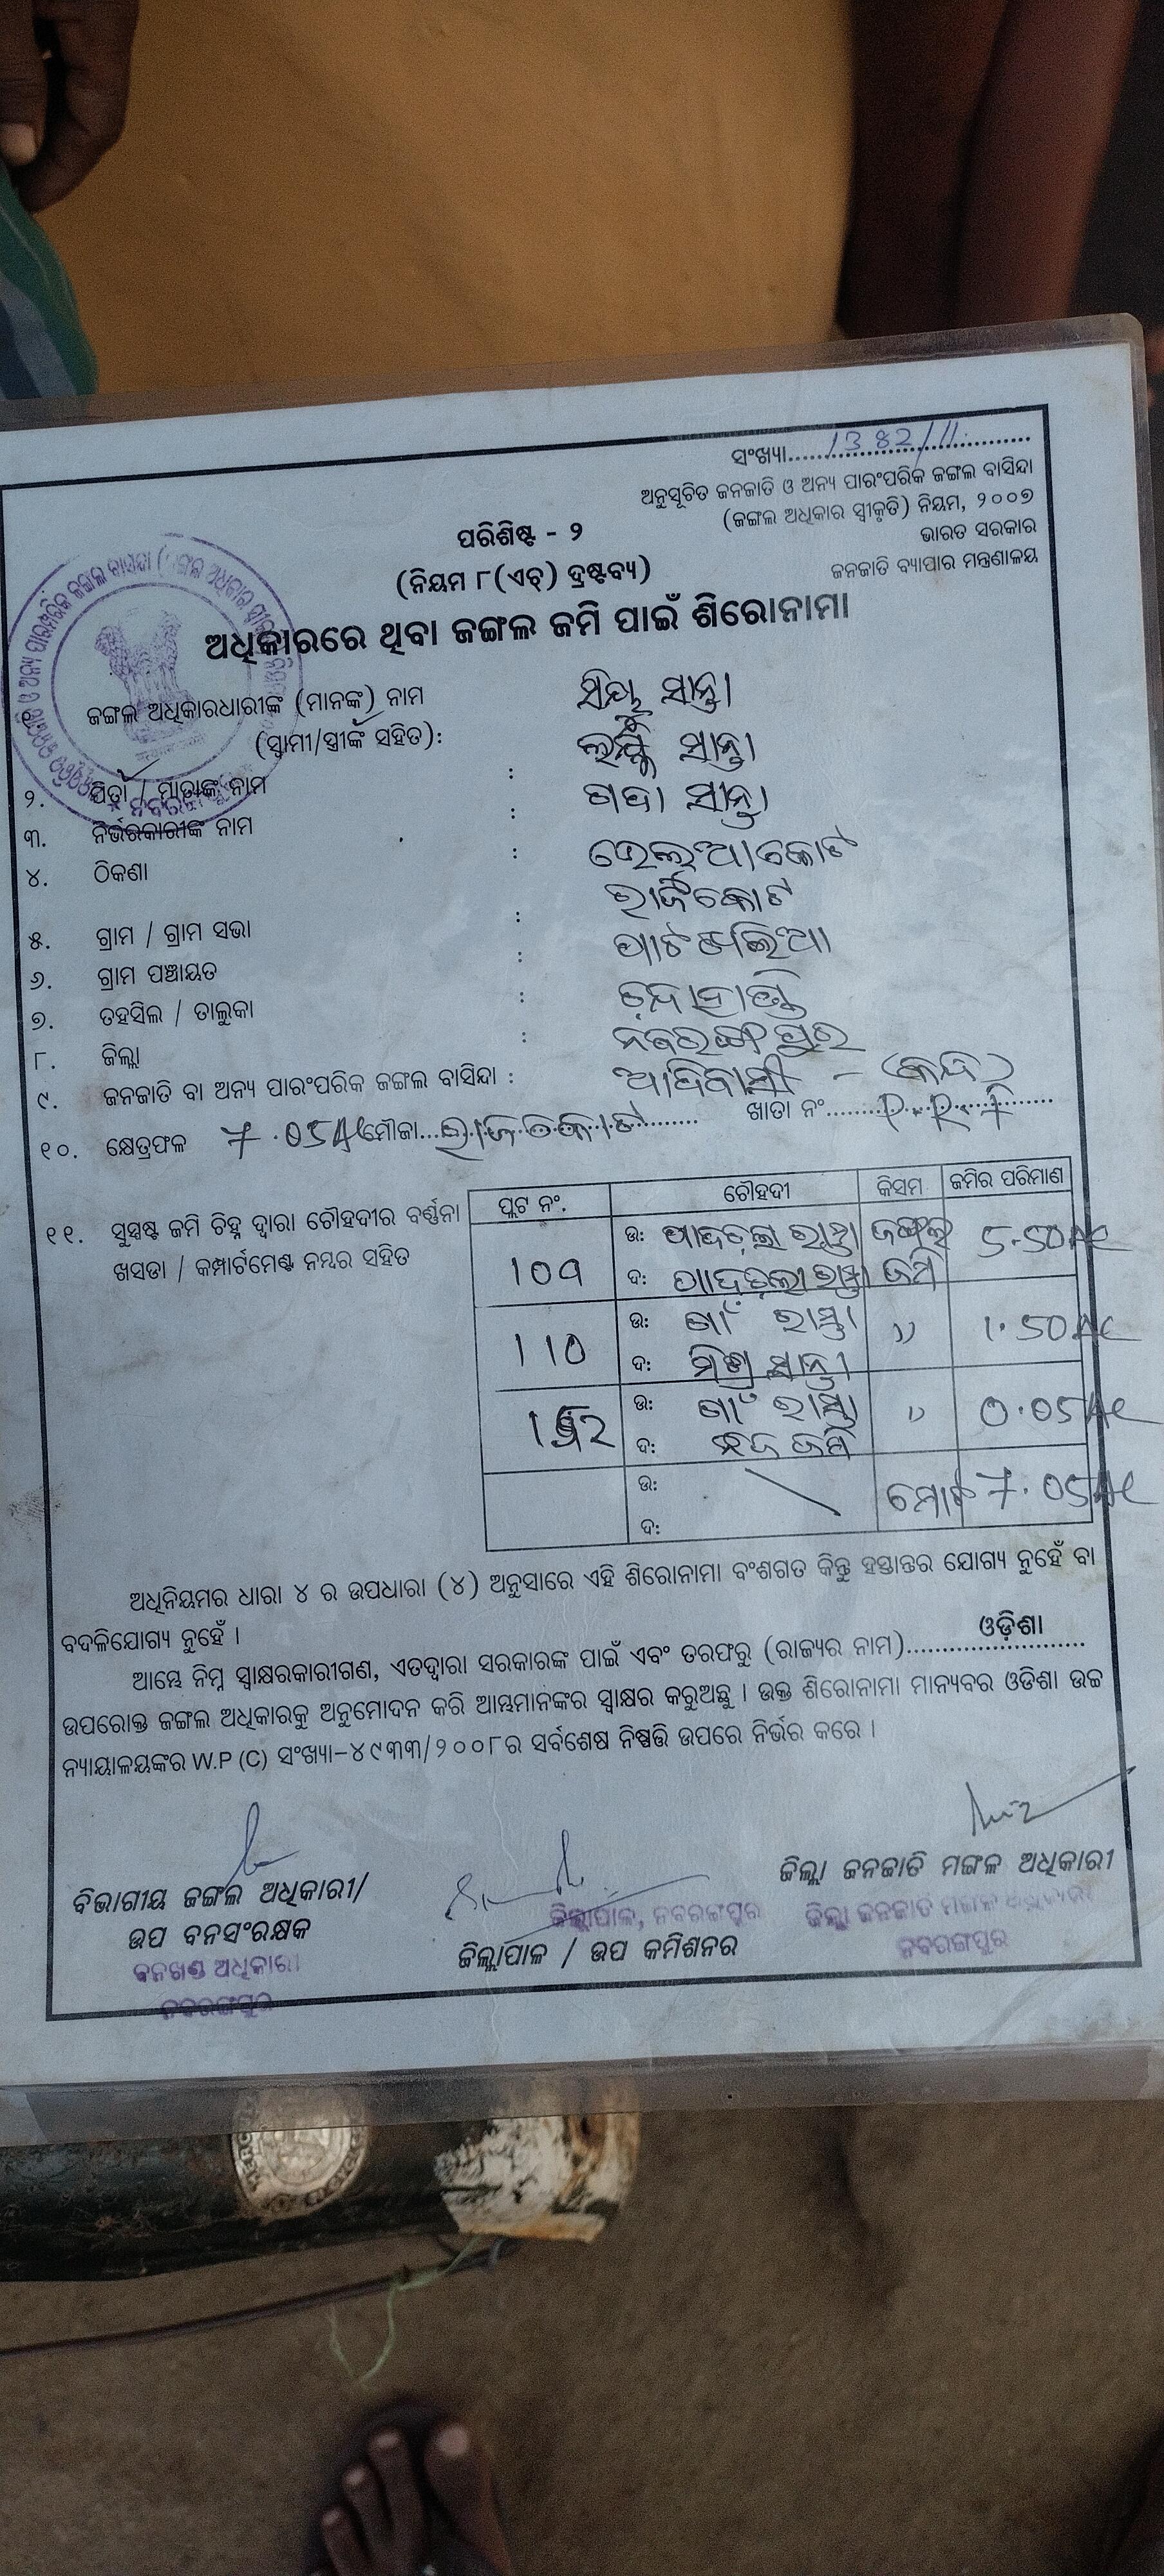 ସଂଖ୍ୟା......1382/11......
ଅନୁସୂଚିତ ଜନଜାତି ଓ ଅନ୍ୟ ପାରଂପରିକ ଜଙ୍ଗଲ ବାସିନ୍ଦା
(ଜଙ୍ଗଲ ଅଧିକାର ସ୍ୱୀକୃତି) ନିୟମ, ୨୦୦୭
ଭାରତ ସରକାର
ଜନଜାତି ବ୍ୟାପାର ମନ୍ତ୍ରଣାଳୟ
ପରିଶିଷ୍ଟ - ୨
(ନିୟମ ୮(ଏଚ୍) ଦ୍ରଷ୍ଟବ୍ୟ)
ଅଧିକାରରେ ଥିବା ଜଙ୍ଗଲ ଜମି ପାଇଁ ଶିରୋନାମା
ଜଙ୍ଗଲ ଅଧିକାରଧାରୀଙ୍କ (ମାନଙ୍କ) ନାମ ସାନ୍ତା
(ସ୍ୱାମୀ/ସ୍ତ୍ରୀଙ୍କ ସହିତ): ସାନ୍ତା
୨. ପିତା / ମାତାଙ୍କ ନାମ : ଗଦା ସାନ୍ତା
୩. ନିର୍ଭରକାରୀଙ୍କ ନାମ :
୪. ଠିକଣା :
୫. ଗ୍ରାମ / ଗ୍ରାମ ସଭା :
୬. ଗ୍ରାମ ପଞ୍ଚାୟତ :
୭. ତହସିଲ / ତାଲୁକା :
୮. ଜିଲ୍ଲା : ନବରଙ୍ଗପୁର
୯. ଜନଜାତି ବା ଅନ୍ୟ ପାରଂପରିକ ଜଙ୍ଗଲ ବାସିନ୍ଦା : ଆଦିବାସୀ -
୧୦. କ୍ଷେତ୍ରଫଳ 7.05 Ac ମୌଜା... ଖାତା ନଂ... P.R.F
୧୧. ସୁସ୍ପଷ୍ଟ ଜମି ଚିହ୍ନ ଦ୍ୱାରା ଚୌହଦୀର ବର୍ଣ୍ଣନା
ଖସଡା / କମ୍ପାର୍ଟମେଣ୍ଟ ନମ୍ବର ସହିତ
ପ୍ଲଟ ନଂ. ଚୌହଦୀ କିସମ ଜମିର ପରିମାଣ
109 ଉ: ରାସ୍ତା ଜଙ୍ଗଲ 5.50 Ac
ଦ: ରାସ୍ତା ଜମି
110 ଉ: ଗାଁ ରାସ୍ତା " 1.50 Ac
ଦ: ସାନ୍ତା
ଉ: ଗାଁ ରାସ୍ତା " 0.05 Ac
ଦ: ଜମି
ଉ: ମୋଟ 7.05 Ac
ଦ:
ଅଧିନିୟମର ଧାରା ୪ ର ଉପଧାରା (୪) ଅନୁସାରେ ଏହି ଶିରୋନାମା ବଂଶଗତ କିନ୍ତୁ ହସ୍ତାନ୍ତର ଯୋଗ୍ୟ ନୁହେଁ ବା
ବଦଳିଯୋଗ୍ୟ ନୁହେଁ ।
ଆମ୍ଭେ ନିମ୍ନ ସ୍ୱାକ୍ଷରକାରୀଗଣ, ଏତଦ୍ୱାରା ସରକାରଙ୍କ ପାଇଁ ଏବଂ ତରଫରୁ (ରାଜ୍ୟର ନାମ)......ଓଡ଼ିଶା......
ଉପରୋକ୍ତ ଜଙ୍ଗଲ ଅଧିକାରକୁ ଅନୁମୋଦନ କରି ଆମ୍ଭମାନଙ୍କର ସ୍ୱାକ୍ଷର କରୁଅଛୁ । ଉକ୍ତ ଶିରୋନାମା ମାନ୍ୟବର ଓଡିଶା ଉଚ୍ଚ
ନ୍ୟାୟାଳୟଙ୍କର W.P (C) ସଂଖ୍ୟା-୪୯୩୩/୨୦୦୮ର ସର୍ବଶେଷ ନିଷ୍ପତ୍ତି ଉପରେ ନିର୍ଭର କରେ ।
ବିଭାଗୀୟ ଜଙ୍ଗଲ ଅଧିକାରୀ/
ଉପ ବନସଂରକ୍ଷକ
ବନଖଣ୍ଡ ଅଧିକାରୀ
ନବରଙ୍ଗପୁର
ଜିଲ୍ଲାପାଳ, ନବରଙ୍ଗପୁର
ଜିଲ୍ଲାପାଳ / ଉପ କମିଶନର
ଜିଲ୍ଲା ଜନଜାତି ମଙ୍ଗଳ ଅଧିକାରୀ
ଜିଲ୍ଲା ଜନଜାତି ମଙ୍ଗଳ ଅଧିକାରୀ
ନବରଙ୍ଗପୁର